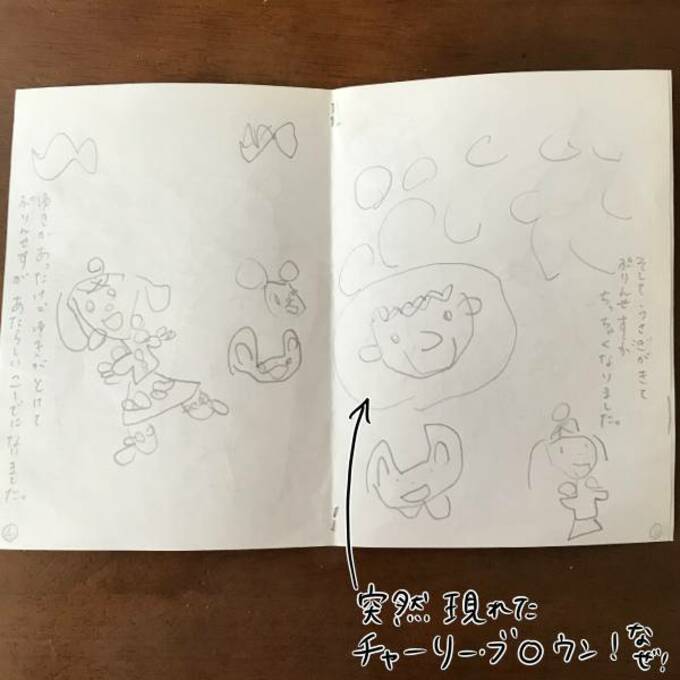 そして、うさぎがきて
ぷりんせすが
ちっちゃくなりました。
ゆきがあったけど ゆきがとけて
ぷりんせすが あたらしい なりました。
突然 現れた
チャーリー・ブ○ウン!
なぜ!